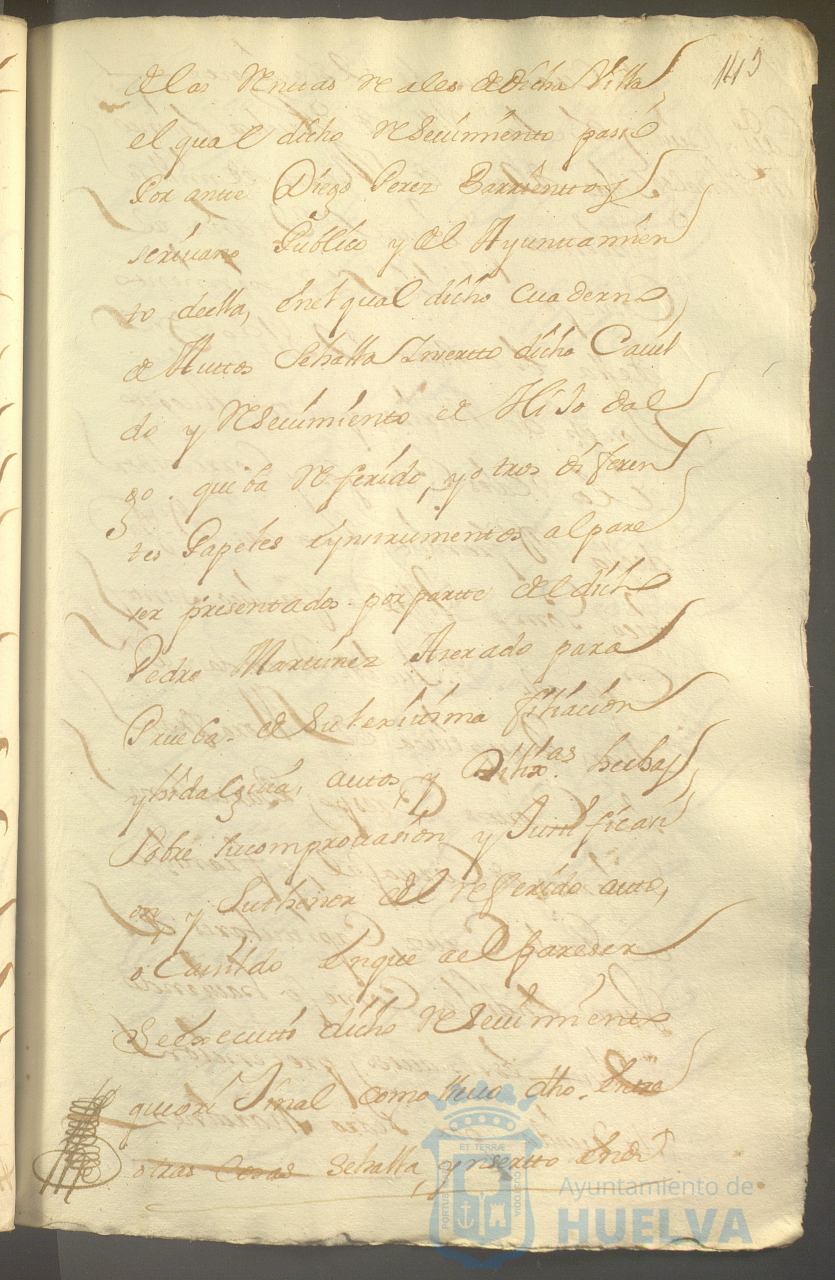 143
de las Rentas Reales de dicha Villa
el qual dicho Reseuimiento pasó
Por antte Diego Perez Barrientos
scriuano Publico y del Ayuntamien
to deella, enel qual dicho cuaderno
de Auttos Sehalla Inserto dicho Cauil
do y Reseuimiento de Hijo dal
go. que ba Referido, y otros diferen
tes Papeles e ynstrumentos al pare
ser presentados por partte del dicho
Pedro Martinez Aserado para
Prueba de su lexitima filiacion
y hidalguia, autos y Dilixas. hechas
Sobre su comprouasion y Justificasi
on, y Suthenor del referido auto,
o Cauildo enque al pareser
Seexecuttó dicho Reseuimiento
que orixinal como lleuo dho. Entre
otras Cosas Sehalla, ynsertto en el
ET TERRÆ
PORTUS
CUSTODIA
Ayuntamiento de
HUELVA